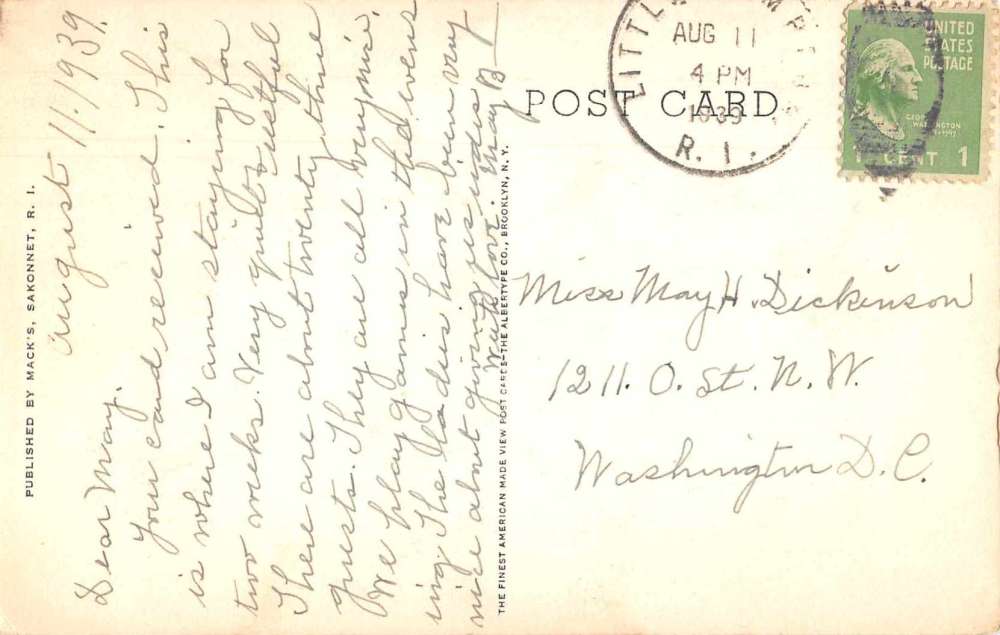 PUBLISHED BY MACK'S, SAKONNET, R. I.
August 11-1939.
Dear May.
Your card received. This
is where I am staying for
two weeks. Very quiet & restful
There are about twenty three
guests. They are all very nice.
We play games in the even
ing. The ladies have been very
nice about giving us rides
With love. May B—
THE FINEST AMERICAN MADE VIEW POST CARDS—THE ALBERTYPE CO., BROOKLYN, N. Y.
POST CARD
LITTLE
AUG 11
4 PM
1939
R. I.
UNITED
STATES
POSTAGE
GEORGE
WASHINGTON
1 CENT 1
Miss May H. Dickinson
1211. O. St. N. W.
Washington D. C.